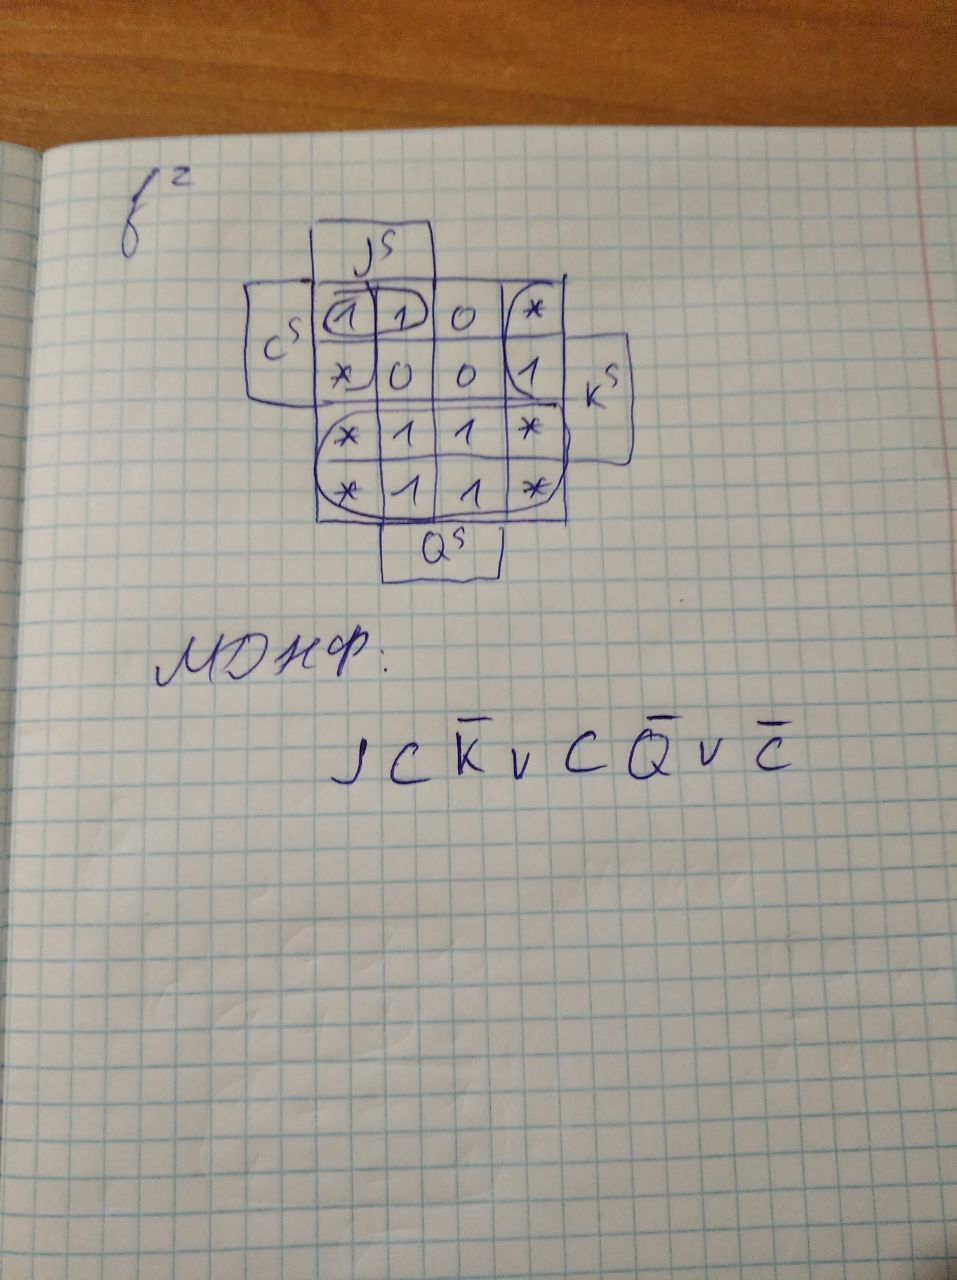 f²
Jˢ
Cˢ 1 1 0 *
* 0 0 1 Kˢ
* 1 1 *
* 1 1 *
Qˢ
МДНФ:
J C K̅ ∨ C Q̅ ∨ C̅